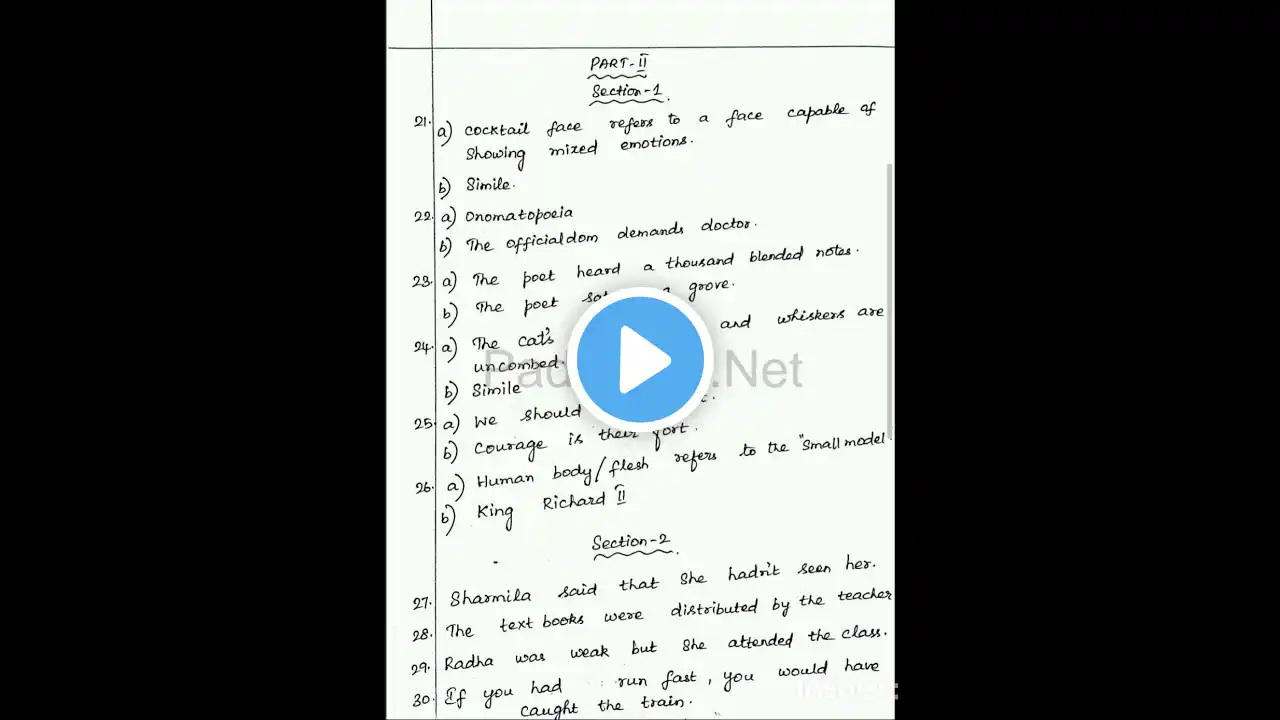 PART-II
Section-1.
21. a) Cocktail face refers to a face capable of
showing mixed emotions.
b) Simile.
22. a) Onomatopoeia
b) The officialdom demands doctor.
23. a) The poet heard a thousand blended notes.
b) The poet grove.
24. a) The cat's and whiskers are
uncombed.
b) Simile
25. a) We should
b) Courage is their fort.
26. a) Human body/flesh refers to the "small model
b) King Richard II
Section-2.
27. Sharmila said that she hadn't seen her.
28. The text books were distributed by the teacher
29. Radha was weak but she attended the class.
30. If you had run fast, you would have
caught the train.
.Net